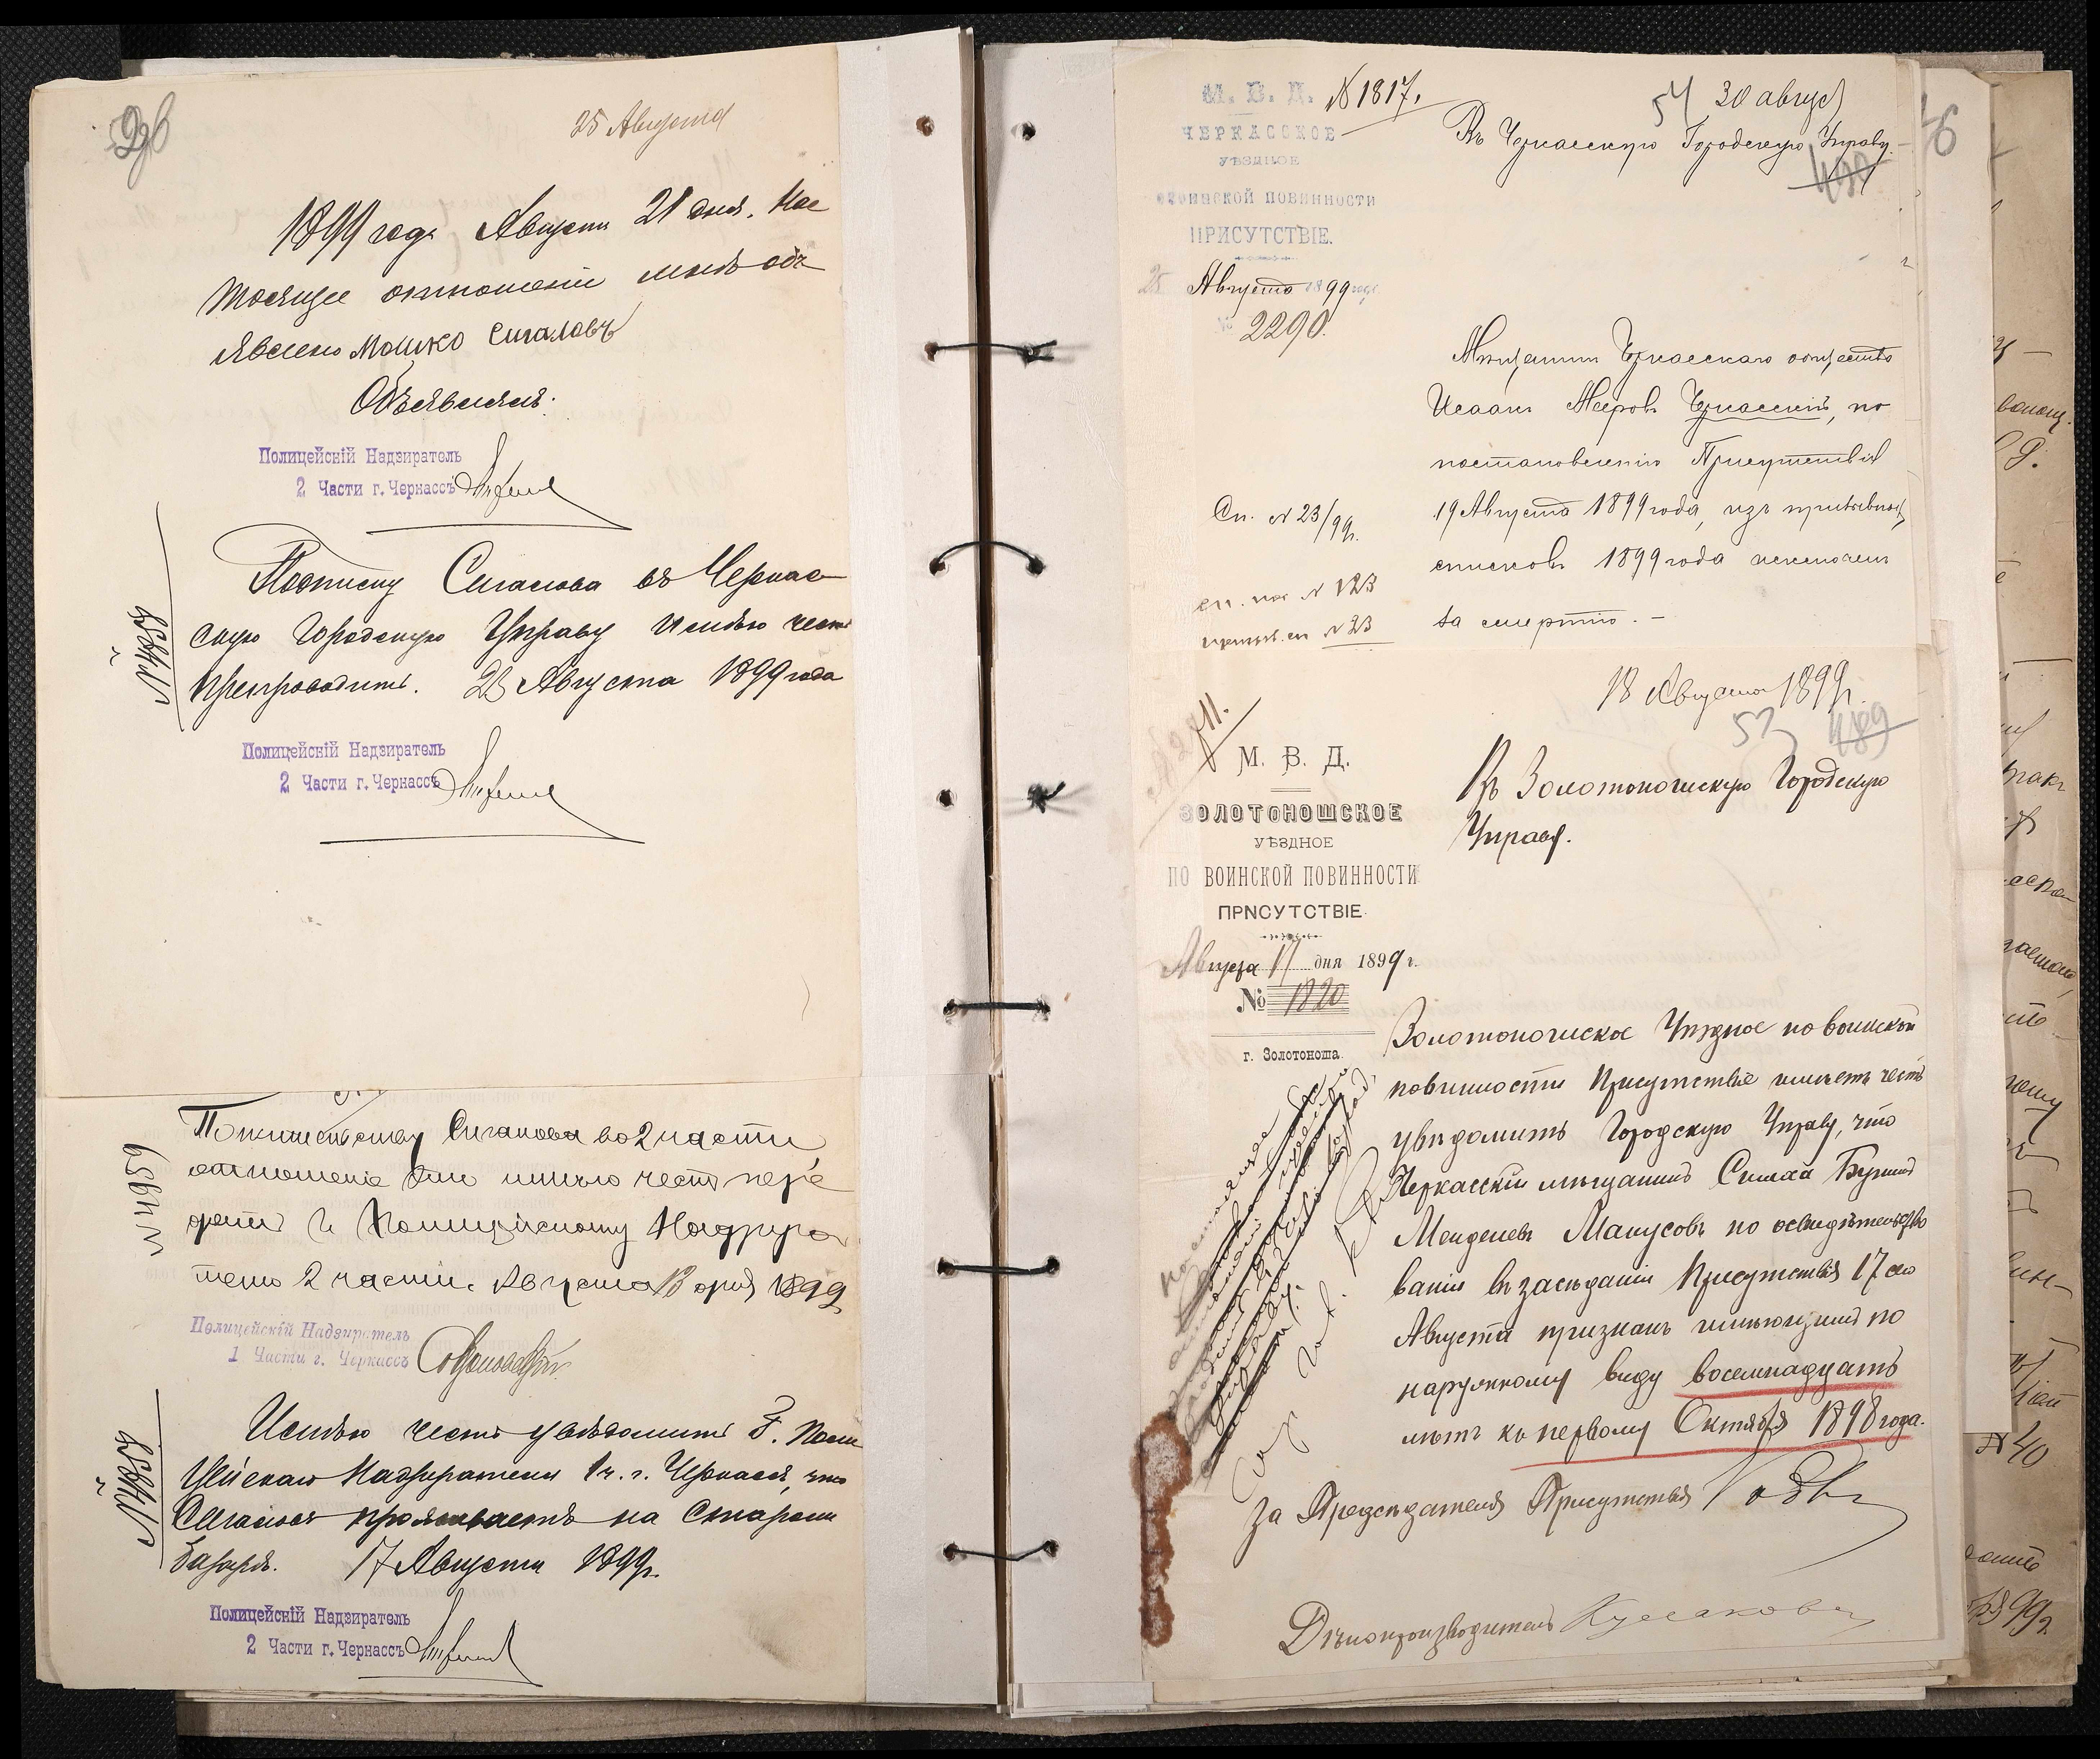 25 Августа
1899 года Августа 21 дня. Нас
тоящее отношеніе мнѣ объ
явлено Мошко Сигаловъ
Объявилъ:
Полицейскій Надзиратель
2 Части г. Черкассъ
Подписку Сигалова въ Черкас
скую Городскую Управу имѣю честь
препроводить. 23 Августа 1899 года
Полицейскій Надзиратель
2 Части г. Черкассъ
По жительству Сигалова во 2 части,
отношеніе это имѣю честь пере
дать Г. Полицейскому Надзира
телю 2 части. Августа 13 дня 1899
№ 4959
Полицейскій Надзиратель
1 Части г. Черкассъ
Имѣю честь увѣдомить Г. Поли
цейскаго Надзирателя 1 ч. г. Черкассъ, что
Сигаловъ проживаетъ на Старомъ
базарѣ. 17 Августа 1899 г.
Полицейскій Надзиратель
2 Части г. Черкассъ
М. В. Д.
№ 1817.
ЧЕРКАССКОЕ
УѢЗДНОЕ
ВОИНСКОЙ ПОВИННОСТИ
ПРИСУТСТВІЕ.
25 Августа 1899 года
№ 2290.
54
30 август
46
Въ Черкасскую Городскую Управу.
490
Мѣщанинъ Черкасскаго общества
Исаакъ Мееровъ Черкасскій, по
постановленію Присутствія
19 Августа 1899 года, изъ призывныхъ
списковъ 1899 года исключенъ
за смертію. —
Сп. № 23/99 г.
сп. пос № 123
призыв. сп № 23
18 Августа 1899 г.
53
489
М. В. Д.
ЗОЛОТОНОШСКОЕ
УѢЗДНОЕ
ПО ВОИНСКОЙ ПОВИННОСТИ
ПРИСУТСТВІЕ
Августа 17 дня 1899 г.
№ 1820
г. Золотоноша.
Въ Золотоношскую Городскую
Управу.
Золотоношское Уѣздное по воинской
повинности Присутствіе имѣетъ честь
увѣдомить Городскую Управу, что
Черкасскій мѣщанинъ Симха Бунимъ
Менделевъ Манусовъ по освидѣтельство
ваніи въ засѣданіи Присутствія 17 сего
Августа признанъ имѣющимъ по
наружному виду восемнадцать
лѣтъ къ первому Октября 1898 года.
За Предсѣдателя Присутствія
Дѣлопроизводитель Кулаковъ